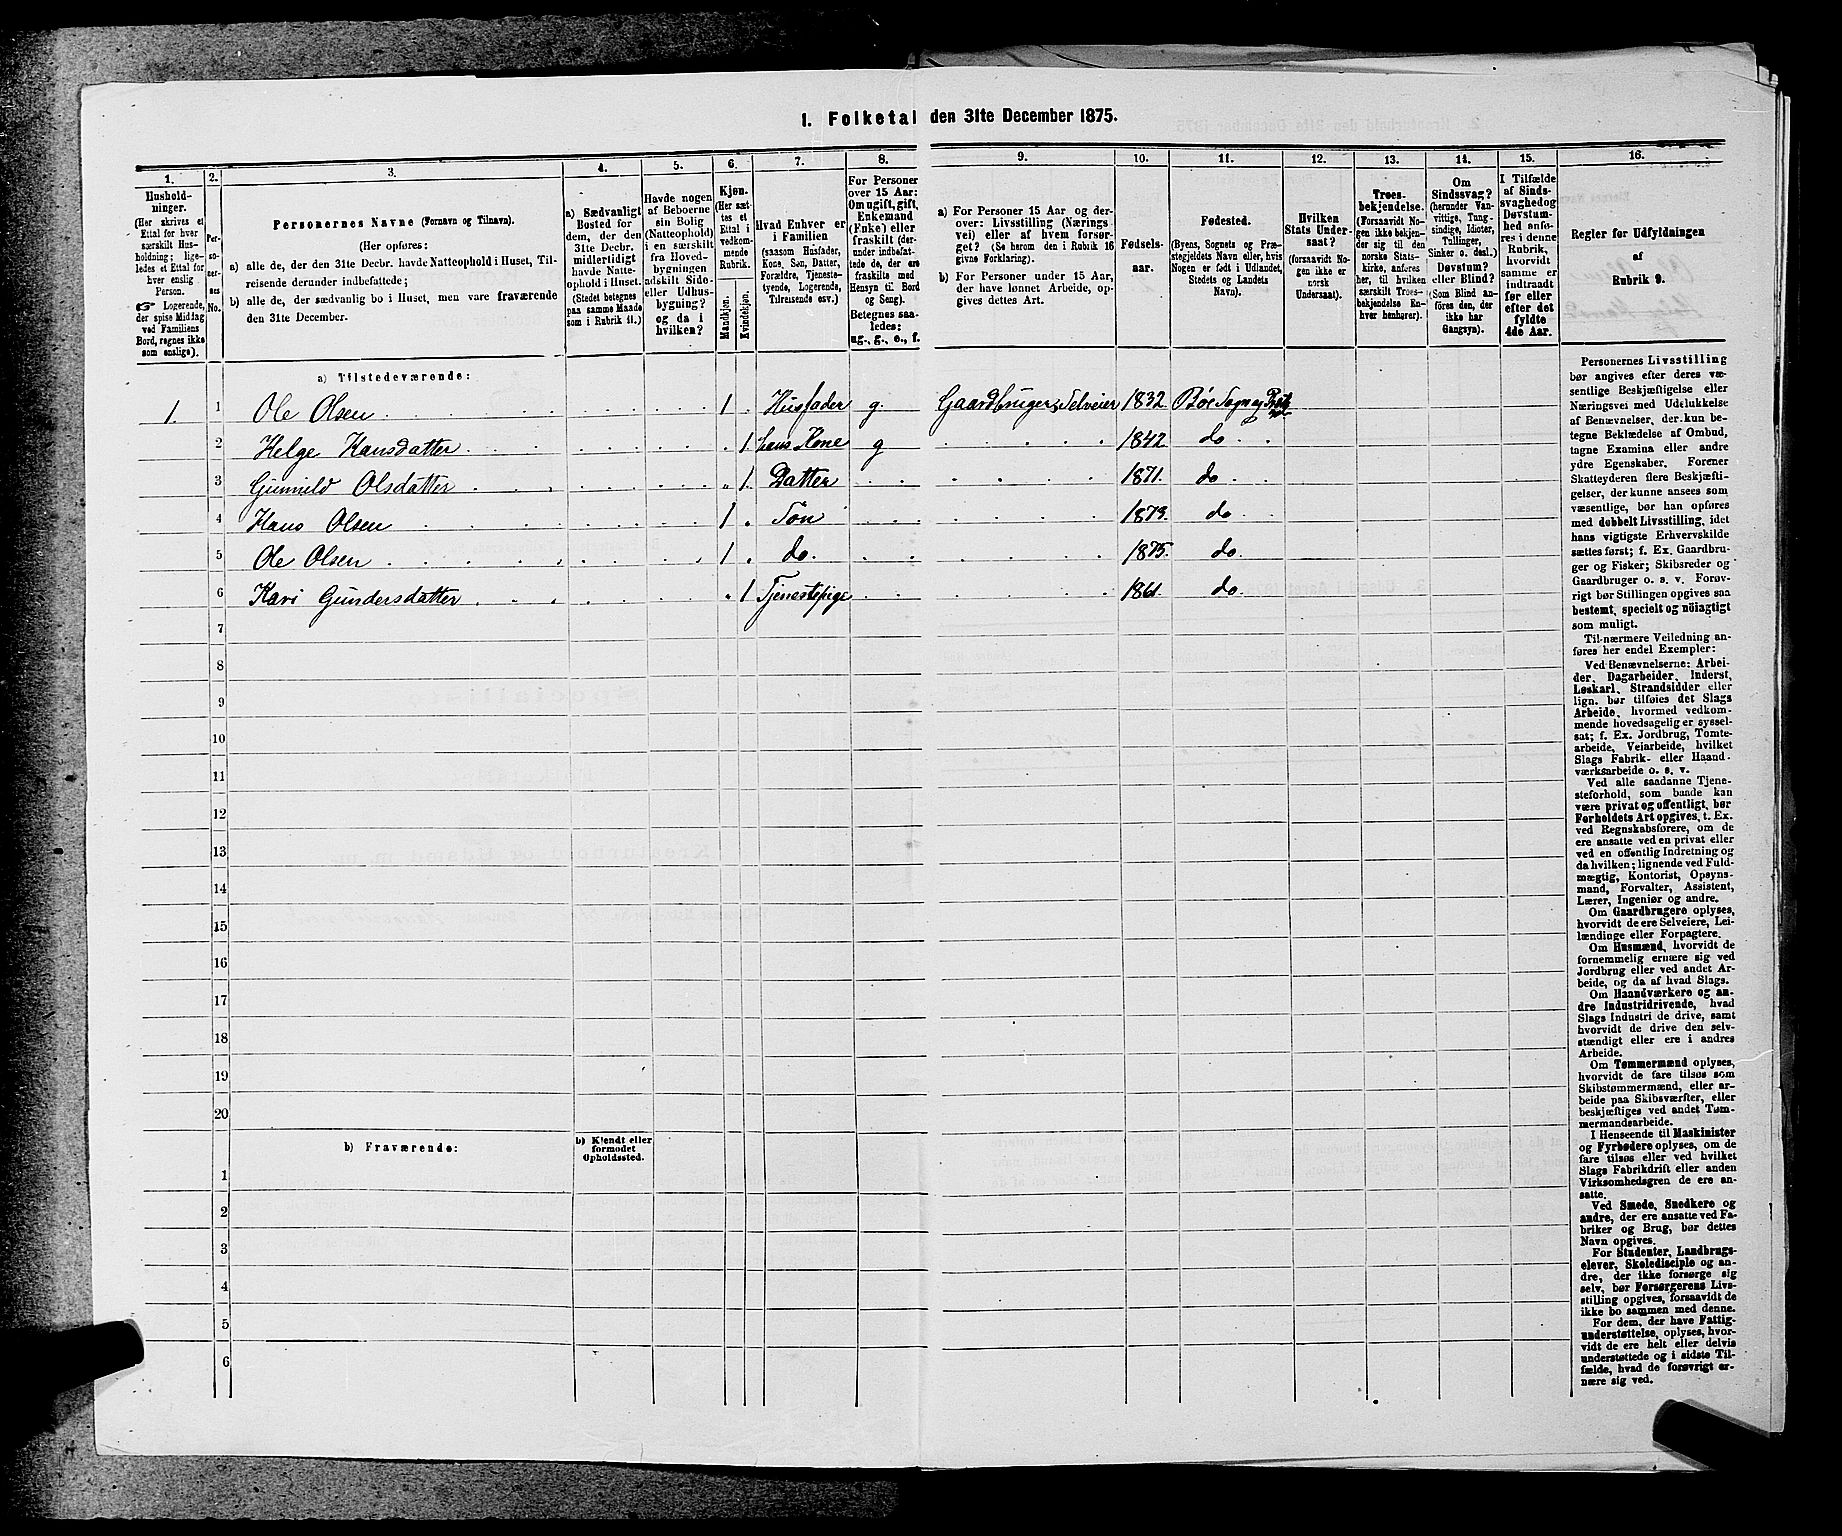 1. Folketal den 31te December 1875.
1. 2. 3. 4. 5. 6. 7. 8. 9. 10. 11. 12. 13. 14. 15. 16.
Hushold-
ninger.
(Her skrives et
Ettal for hver
særskilt Hus-
holdning; lige-
ledes et Ettal for
hver enslig
Person.
☞ Logerende,
der spise Middag
ved Familiens
Bord, regnes ikke
som enslige).
Per-
so-
ner-
nes
No.
Personernes Navne (Fornavn og Tilnavn).
(Her opføres:
a) alle de, der den 31te Decbr. havde Natteophold i Huset, Til-
reisende derunder indbefattede;
b) alle de, der sædvanlig bo i Huset, men vare fraværende
den 31te December.
a) Sædvanligt
Bosted for
dem, der den
31te Decbr.
midlertidigt
havde Natte-
ophold i Huset.
(Stedet betegnes
paa samme Maade
som i Rubrik 11.)
Havde nogen
af Beboerne
sin Bolig
(Natteophold)
i en særskilt
fra Hoved-
bygningen
adskilt Side-
eller Udhus-
bygning?
og da i
hvilken?
Kjøn.
(Her sæt-
tes et
Ettal i
vedkom-
mende
Rubrik.
Mandkjøn.
Kvindekjøn.
Hvad Enhver er
i Familien
(saasom Husfader,
Kone, Søn, Datter,
Forældre, Tjeneste-
tyende, Logerende,
Tilreisende osv.)
For Personer
over 15 Aar:
Om ugift, gift,
Enkemand
(Enke) eller
fraskilt (der-
under indbefat-
tede de, der ere
fraskilte med
Hensyn til Bord
og Seng).
Betegnes saa-
ledes:
ug., g., e., f.
a) For Personer 15 Aar og der-
over: Livsstilling (Nærings-
vei) eller af hvem forsør-
get? (Se herom den i Rubrik 16
givne Forklaring).
b) For Personer under 15 Aar,
der have lønnet Arbeide, op-
gives dettes Art.
Fødsels-
aar.
Fødested.
(Byens, Sognets og Præ-
stegjeldets Navn eller, hvis
Nogen er født i Udlandet,
Stedets og Landets
Navn).
Hvilken
Stats Under-
saat?
(forsaavidt No-
gen ikke er
norsk
Undersaat).
Troes-
bekjendelse.
(Forsaavidt No-
gen ikke bekjen-
der sig til den
norske Stats-
kirke, anføres
her, til hvilken
særskilt Troes-
bekjendelse En-
hver henhører).
Om
Sindssvag?
(herunder Van-
vittige, Tung-
sindige, Idioter,
Tullinger,
Sinker o. desl.)
Døvstum?
eller Blind?
(Som Blind an-
føres den, der
ikke har
Gangsyn).
I Tilfælde
af Sinds-
svaghed og
Døvstum-
hed anfø-
res i denne
Rubrik,
hvorvidt
samme er
indtraadt
før eller
efter det
fyldte
4de Aar.
Regler for Udfyldningen
af
Rubrik 9.
a) Tilstedeværende:
1. 1 Ole Olsen 1 Husfader g. Gaardbruger, Selveier 1832. Bøe Sogn og
2 Helge Hansdatter 1 hans Kone g 1842 do
3 Gunnild Olsdatter 1 Datter 1871. do
4 Hans Olsen 1 Søn 1873. do
5 Ole Olsen 1 do. 1875. do
6 Kari Gundersdatter 1 Tjenestepige 1861. do
7
8
9
10
11
12
13
14
15
16
17
18
19
20
b) Fraværende:
b) Kjendt eller
formodet
Opholdssted.
1
2
3
4
5
6
Personernes Livsstilling
bør angives efter deres væ-
sentlige Beskjæftigelse eller
Næringsvei med Udelukkelse
af Benævnelser, der kun be-
tegne Beklædelse af Ombud,
tagne Examina eller andre
ydre Egenskaber. Forener
Skatteyderen flere Beskjæfti-
gelser, der kunne ansees som
væsentlige, bør han opføres
med dobbelt Livsstilling, idet
hans vigtigste Erhvervskilde
sættes først; f. Ex. Gaardbru-
ger og Fisker; Skibsreder og
Gaardbruger o. s. v. Forøv-
rigt bør Stillingen opgives saa
bestemt, specielt og nöiagtigt
som muligt.
Til nærmere Veiledning an-
føres her endel Exempler:
Ved Benævnelserne: Arbei-
der, Dagarbeider, Inderst,
Løskarl, Strandsidder eller
lign. bør tilføies det Slags
Arbeide, hvormed vedkom-
mende hovedsagelig er syssel-
sat; f. Ex. Jordbrug, Tomte-
arbeide, Veiarbeide, hvilket
Slags Fabrik- eller Haand-
værksarbeide o. s. v.
Ved alle saadanne Tjene-
steforhold, som baade kan
være privat og offentligt, bør
Forholdets Art opgives, t. Ex.
ved Regnskabsførere, om de
ere ansatte ved en privat eller
ved en offentlig Indretning og
da hvilken; lignende ved Fuld-
mægtig, Kontorist, Opsyns-
mand, Forvalter, Assistent,
Lærer, Ingeniør og andre.
Om Gaardbrugere oplyses,
hvorvidt de ere Selveiere, Lei-
lændinge eller Forpagtere.
Om Husmænd, hvorvidt de
fornemmelig ernære sig ved
Jordbrug eller ved andet Ar-
beide, og da af hvad Slags.
Om Haandværkere og an-
dre Industridrivende, hvad
Slags Industri de drive, samt
hvorvidt de drive den selv-
stændigt eller ere i andres
Arbeide.
Om Tømmermænd oplyses,
hvorvidt de fare tilsøs som
Skibstømmermænd, eller ar-
beide paa Skibsværfter, eller
beskjæftiges ved andet Tøm-
mermandsarbeide.
I Henseende til Maskinister
og Fyrbødere oplyses, om de
fare tilsøs eller ved hvilket
Slags Fabrikdrift eller anden
Virksomhedsgren de ere an-
satte.
Ved Smede, Snedkere og
andre, der ere ansatte ved Fa-
briker og Brug, bør dettes
Navn opgives.
For Studenter, Landbrugs-
elever, Skoledisciple og an-
dre, der ikke forsørge sig
selv, bør Forsørgerens Livs-
stilling opgives, forsaavidt de
ikke bo sammen med denne.
For dem, der have Fattig-
understøttelse, oplyses, hvor-
vidt de ere helt eller delvis
understøttede og i sidste Til-
fælde, hvad de forøvrigt er-
nære sig ved.